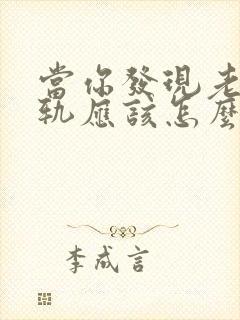 當你發現老
軌應該怎麼
李成言